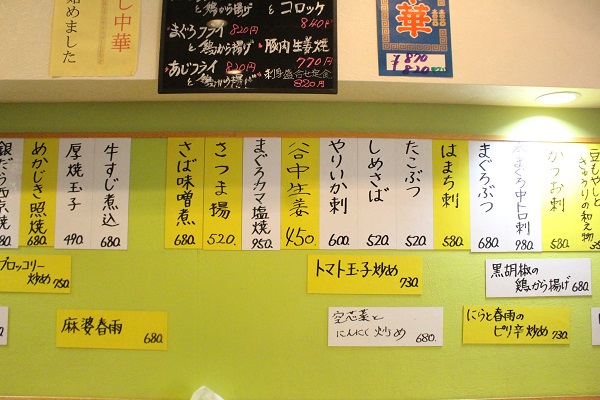 し中華
始めました
と鶏から揚げ
コロッケ
840円
まぐろフライ 820円
と鶏から揚げ
豚肉生姜焼
770円
あじフライ 820円
と鶏から揚げ
刺身盛合せ定食
820円
華
¥870
820
豆もやしと
きゅうりの和え物
かつお刺
580
本まぐろ中トロ刺
980
まぐろぶつ
680
はまち刺
580
たこぶつ
520
しめさば
520
やりいか刺
600
谷中生姜
450
まぐろカマ塩焼
950
さつま揚
520
さば味噌煮
680
牛すじ煮込
680
厚焼玉子
490
めかじき照焼
680
銀だら西京焼
ブロッコリー
炒め 750
トマト玉子炒め
730
黒胡椒の
鶏から揚げ 680
麻婆春雨
680
空芯菜と
にんにく炒め 680
にらと春雨の
ピリ辛炒め 730